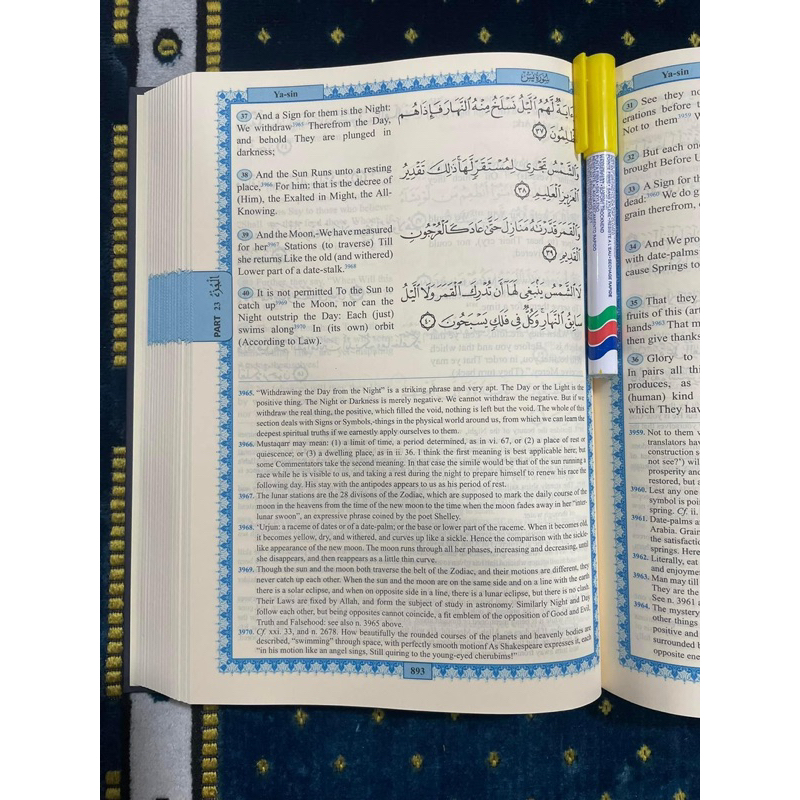 Ya-sin
سورة يس
37 And a Sign for them is the Night:
We withdraw3965 Therefrom the Day,
and behold They are plunged in
darkness;
38 And the Sun Runs unto a resting
place,3966 For him: that is the decree of
(Him), the Exalted in Might, the All-
Knowing.
39 And the Moon,-We have measured
for her3967 Stations (to traverse) Till
she returns Like the old (and withered)
Lower part of a date-stalk.3968
40 It is not permitted To the Sun to
catch up3969 the Moon, nor can the
Night outstrip the Day: Each (just)
swims along3970 In (its own) orbit
(According to Law).
وَءَايَةٌ لَّهُمُ ٱلَّيۡلُ نَسۡلَخُ مِنۡهُ ٱلنَّهَارَ فَإِذَا هُم
مُّظۡلِمُونَ ٣٧
وَٱلشَّمۡسُ تَجۡرِي لِمُسۡتَقَرٍّ لَّهَا ذَٰلِكَ تَقۡدِيرُ
ٱلۡعَزِيزِ ٱلۡعَلِيمِ ٣٨
وَٱلۡقَمَرَ قَدَّرۡنَٰهُ مَنَازِلَ حَتَّىٰ عَادَ كَٱلۡعُرۡجُونِ
ٱلۡقَدِيمِ ٣٩
لَا ٱلشَّمۡسُ يَنۢبَغِي لَهَآ أَن تُدۡرِكَ ٱلۡقَمَرَ وَلَا ٱلَّيۡلُ
سَابِقُ ٱلنَّهَارِ وَكُلٌّ فِي فَلَكٍ يَسۡبَحُونَ ٤٠
PART 23 الجزء
3965. “Withdrawing the Day from the Night” is a striking phrase and very apt. The Day or the Light is the
positive thing. The Night or Darkness is merely negative. We cannot withdraw the negative. But if we
withdraw the real thing, the positive, which filled the void, nothing is left but the void. The whole of this
section deals with Signs or Symbols,-things in the physical world around us, from which we can learn the
deepest spiritual truths if we earnestly apply ourselves to them.
3966. Mustaqarr may mean: (1) a limit of time, a period determined, as in vi. 67, or (2) a place of rest or
quiescence; or (3) a dwelling place, as in ii. 36. I think the first meaning is best applicable here; but
some Commentators take the second meaning. In that case the simile would be that of the sun running a
race while he is visible to us, and taking a rest during the night to prepare himself to renew his race the
following day. His stay with the antipodes appears to us as his period of rest.
3967. The lunar stations are the 28 divisons of the Zodiac, which are supposed to mark the daily course of the
moon in the heavens from the time of the new moon to the time when the moon fades away in her “inter-
lunar swoon”, an expressive phrase coined by the poet Shelley.
3968. ‘Urjun: a raceme of dates or of a date-palm; or the base or lower part of the raceme. When it becomes old,
it becomes yellow, dry, and withered, and curves up like a sickle. Hence the comparison with the sickle-
like appearance of the new moon. The moon runs through all her phases, increasing and decreasing, until
she disappears, and then reappears as a little thin curve.
3969. Though the sun and the moon both traverse the belt of the Zodiac, and their motions are different, they
never catch up each other. When the sun and the moon are on the same side and on a line with the earth
there is a solar eclipse, and when on opposite side in a line, there is a lunar eclipse, but there is no clash.
Their Laws are fixed by Allah, and form the subject of study in astronomy. Similarly Night and Day
follow each other, but being opposites cannot coincide, a fit emblem of the opposition of Good and Evil,
Truth and Falsehood: see also n. 3965 above.
3970. Cf. xxi. 33, and n. 2678. How beautifully the rounded courses of the planets and heavenly bodies are
described, “swimming” through space, with perfectly smooth motion! As Shakespeare expresses it, each
“in his motion like an angel sings, Still quiring to the young-eyed cherubims!”
893
Ya-sin
31 See they no
erations before t
Not to them3959 W
32 But each one
brought Before U
33 A Sign for th
dead:3960 We do g
grain therefrom, o
34 And We pro
with date-palms
cause Springs to
35 That they
fruits of this (art
hands3963 That m
then give thanks
36 Glory to
In pairs all th
produces, as
(human) kind
which They hav
3959. Not to them v
translators hav
construction s
not see?’) wil
prosperity and
restored, but a
3960. Lest any one
symbol is poi
spring. Cf. ii.
3961. Date-palms a
Arabia. Grain
the satisfactio
springs. Here
3962. Literally, eat
and enjoyme
3963. Man may till
They are the
See n. 3961 a
3964. The mystery
other things
positive and
surrounded b
opposite ene